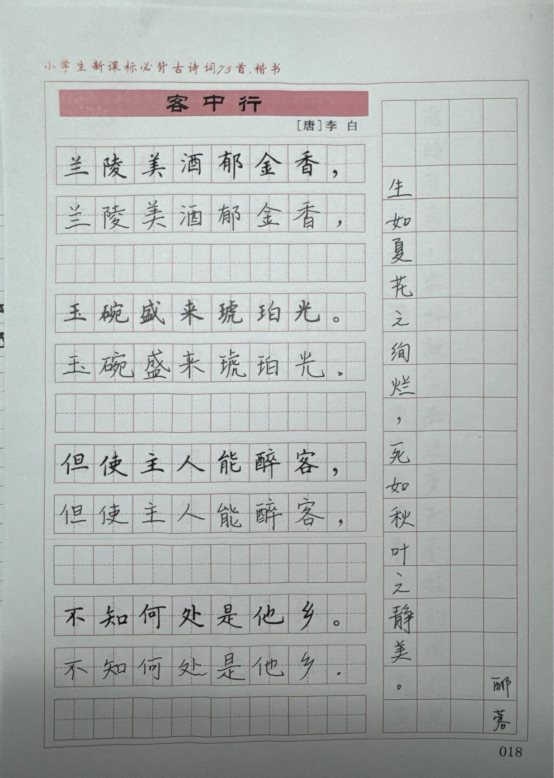 小学生新课标必背古诗词75首.楷书
客中行
[唐]李 白
兰陵美酒郁金香，
兰陵美酒郁金香，
玉碗盛来琥珀光。
玉碗盛来琥珀光。
但使主人能醉客，
但使主人能醉客，
不知何处是他乡。
不知何处是他乡.
生如夏花之绚烂，死如秋叶之静美。
018